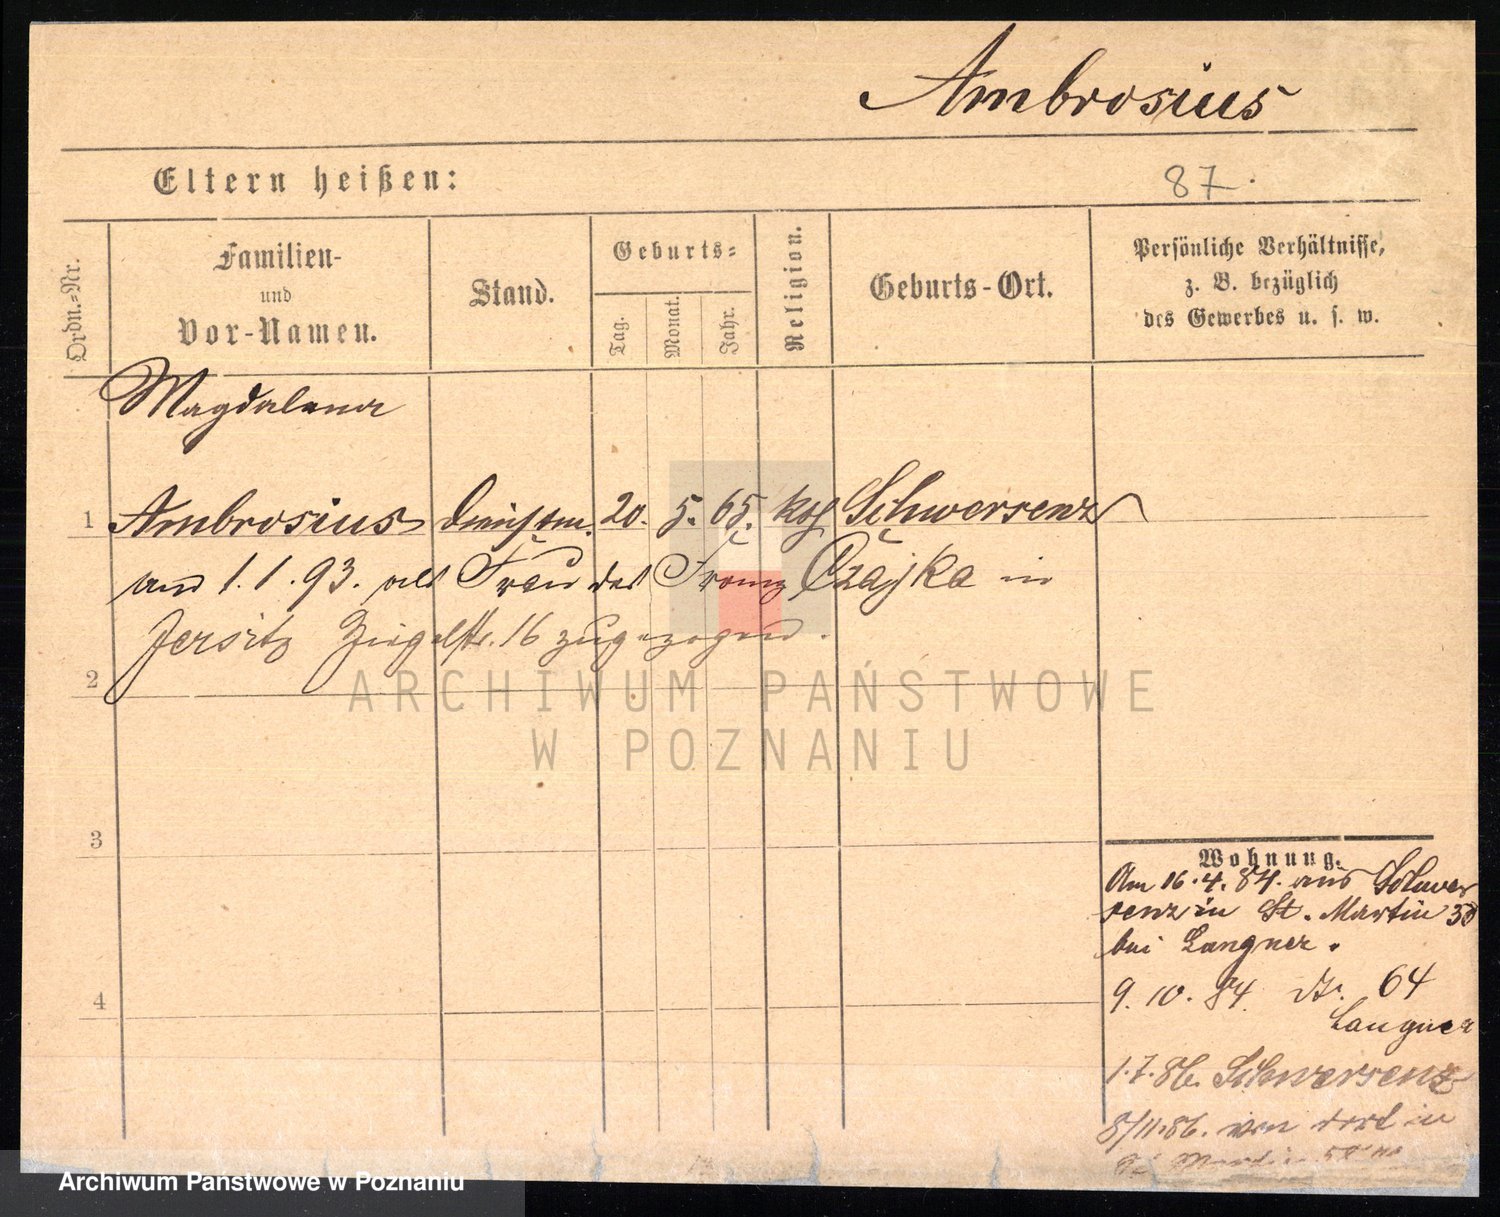 Ambrosius
Eltern heißen:
87.
Ordn.-Nr.
Familien-
und
Vor-Namen.
Stand.
Geburts-
Tag.
Monat.
Jahr.
Religion.
Geburts-Ort.
Persönliche Verhältnisse,
z. B. bezüglich
des Gewerbes u. s. w.
Magdalena
1 Ambrosius Dienstm. 20. 5. 65. kath Schwersenz
am 1.1.93. als Frau des Franz Czajka in
Jersitz Ziegelstr. 16 zugezogen.
2
3
4
Wohnung.
Am 16.4.84. aus Schwer
senz in St. Martin
bei Langner.
9.10.84. 64
Langner
1.7.86. Schwersenz
8/11.86. von dort in
Martin
ARCHIWUM PAŃSTWOWE
W POZNANIU
Archiwum Państwowe w Poznaniu